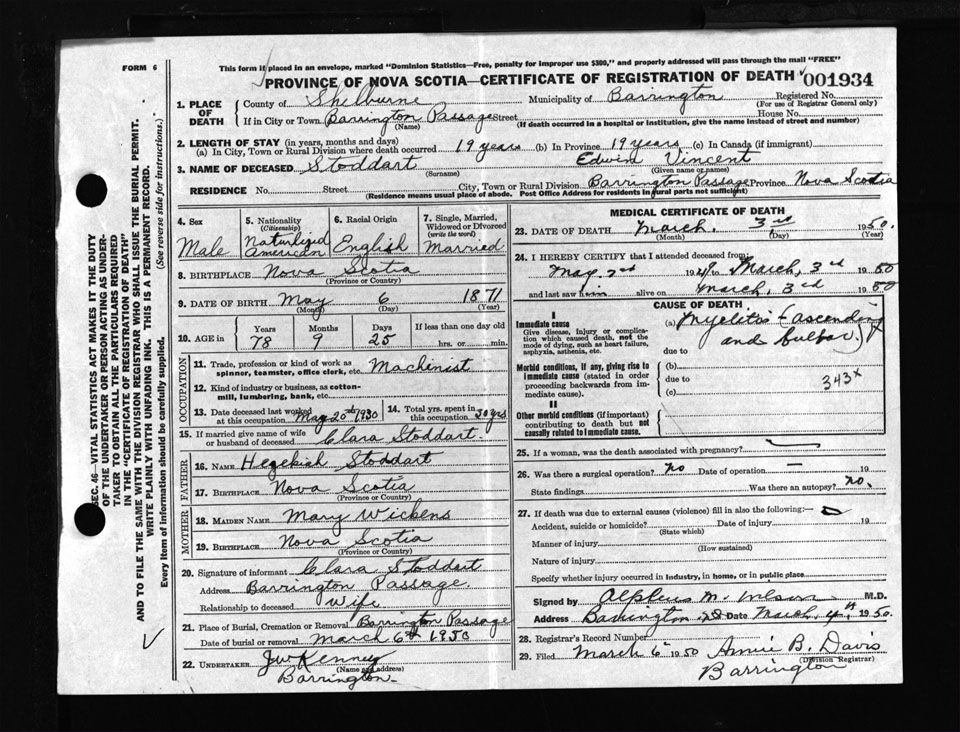 FORM 6
This form if placed in an envelope, marked "Dominion Statistics—Free, penalty for improper use $300," and properly addressed will pass through the mail "FREE"
PROVINCE OF NOVA SCOTIA—CERTIFICATE OF REGISTRATION OF DEATH 001934
1. PLACE OF DEATH
County of Shelburne Municipality of Barrington Registered No.
(For use of Registrar General only)
If in City or Town Barrington Passage Street House No.
(Name) (If death occurred in a hospital or institution, give the name instead of street and number)
2. LENGTH OF STAY (in years, months and days)
(a) In City, Town or Rural Division where death occurred 19 years (b) In Province 19 years (c) In Canada (if immigrant)
3. NAME OF DECEASED Stoddart Edwin Vincent
(Surname) (Given name or names)
RESIDENCE No. Street City, Town or Rural Division Barrington Passage Province Nova Scotia
(Residence means usual place of abode. Post Office Address for Residents in rural parts not sufficient)
4. Sex
Male
5. Nationality
(Citizenship)
Naturlized American
6. Racial Origin
English
7. Single, Married, Widowed or Divorced
(write the word)
Married
8. BIRTHPLACE Nova Scotia
(Province or Country)
9. DATE OF BIRTH May 6 1871
(Month) (Day) (Year)
10. AGE Years Months Days If less than one day old
78 9 25 hrs. or min.
OCCUPATION
11. Trade, profession or kind of work as spinner, teamster, office clerk, etc. Machinist
12. Kind of industry or business, as cotton-mill, lumbering, bank, etc.
13. Date deceased last worked at this occupation May 20th 1930
14. Total yrs. spent in this occupation 20 yrs
15. If married give name of wife or husband of deceased Clara Stoddart.
FATHER
16. NAME Hezekiah Stoddart
17. BIRTHPLACE Nova Scotia
(Province or Country)
MOTHER
18. MAIDEN NAME Mary Wickens
19. BIRTHPLACE Nova Scotia
(Province or Country)
20. Signature of informant Clara Stoddart
Address Barrington Passage.
Relationship to deceased Wife
21. Place of Burial, Cremation or Removal Barrington Passage
Date of burial or removal March 6th 1950
22. UNDERTAKER J W Kenney
(Name and address)
Barrington.
MEDICAL CERTIFICATE OF DEATH
23. DATE OF DEATH March. 3rd 1950.
(Month) (Day) (Year)
24. I HEREBY CERTIFY that I attended deceased from
May 2nd 1949 to March, 3rd 1950
and last saw him alive on March, 3rd 1950
CAUSE OF DEATH
I
Immediate cause
Give disease, injury or complication which caused death, not the mode of dying, such as heart failure, asphyxia, asthenia, etc.
(a) Myelitis (ascending and bulbar.)
due to
Morbid conditions, if any, giving rise to immediate cause (stated in order proceeding backwards from immediate cause).
(b)
due to 343x
(c)
II
Other morbid conditions (if important) contributing to death but not causally related to immediate cause.
25. If a woman, was the death associated with pregnancy?
26. Was there a surgical operation? no Date of operation — 19
State findings Was there an autopsy? no.
27. If death was due to external causes (violence) fill in also the following:—
Accident, suicide or homicide? Date of injury 19
(State which)
Manner of injury
(How sustained)
Nature of injury
Specify whether injury occurred in industry, in home, or in public place
Signed by Alpheus M. Wilson M.D.
Address Barrington NS Date March, 4th 1950.
28. Registrar's Record Number
29. Filed March 6 1950 Annie B. Davis
(Division Registrar)
Barrington
SEC. 46—VITAL STATISTICS ACT MAKES IT THE DUTY
OF THE UNDERTAKER OR PERSON ACTING AS UNDERTAKER
TO OBTAIN ALL THE PARTICULARS REQUIRED
IN THE "CERTIFICATE OF REGISTRATION OF DEATH"
AND TO FILE THE SAME WITH THE DIVISION REGISTRAR WHO SHALL ISSUE THE BURIAL PERMIT.
WRITE PLAINLY WITH UNFADING INK. THIS IS A PERMANENT RECORD.
Every item of information should be carefully supplied. (See reverse side for instructions.)